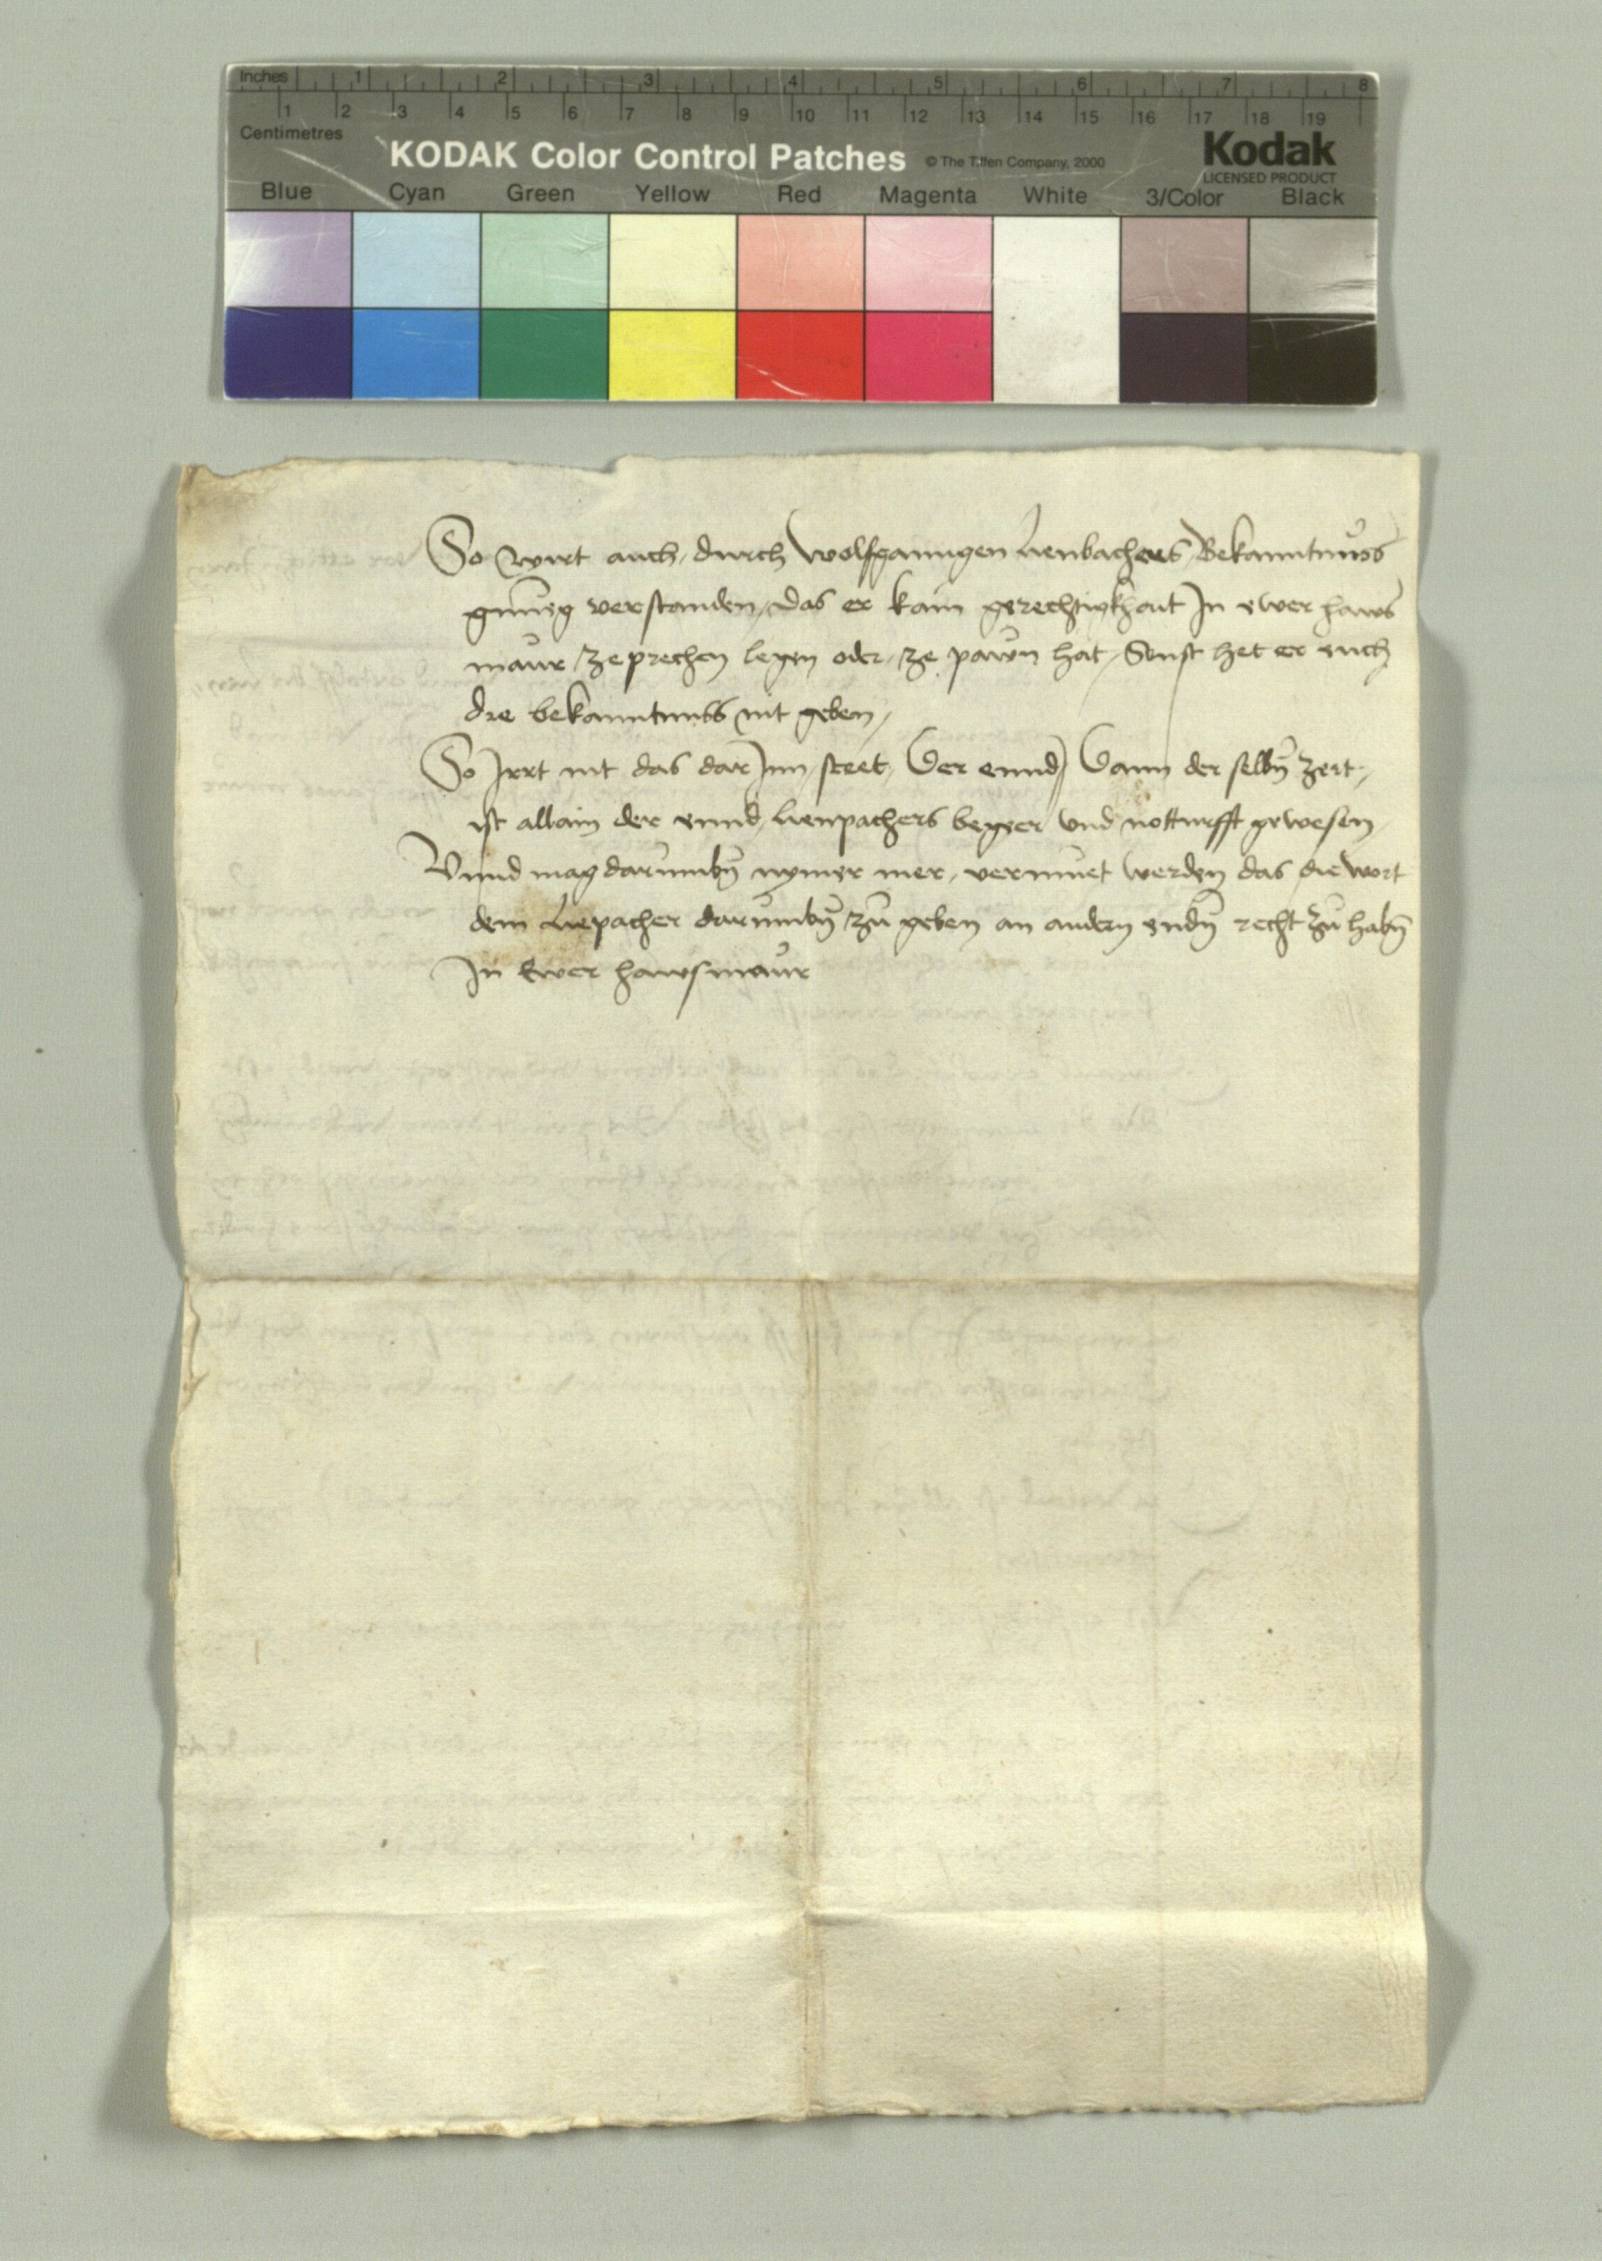 Inches 1 2 3 4 5 6 7 8
1 2 3 4 5 6 7 8 9 10 11 12 13 14 15 16 17 18 19
Centimetres
KODAK Color Control Patches © The Tiffen Company, 2000 Kodak
LICENSED PRODUCT
Blue Cyan Green Yellow Red Magenta White 3/Color Black
So wirt auch durch Wolfganngen Lienbachers Bekanntnuss
gnueg verstanden, das er kain gerechtigkhait In ewer haws
maur zeprechen legen oder ze pawn hat, Sonst het er euch
die bekanntnuss nit geben,
So Irrt nit das darInn steet, Der ennd, Dann der selbn zeit,
ist allain der ennd Lienpachers beger vnd notturfft gewesen,
Vnnd mag darumbn nymer mer, vermuet werden das die wort
dem Liepacher darumbn zu geben an andern endn recht zu habn
In Ewer hawsmaur